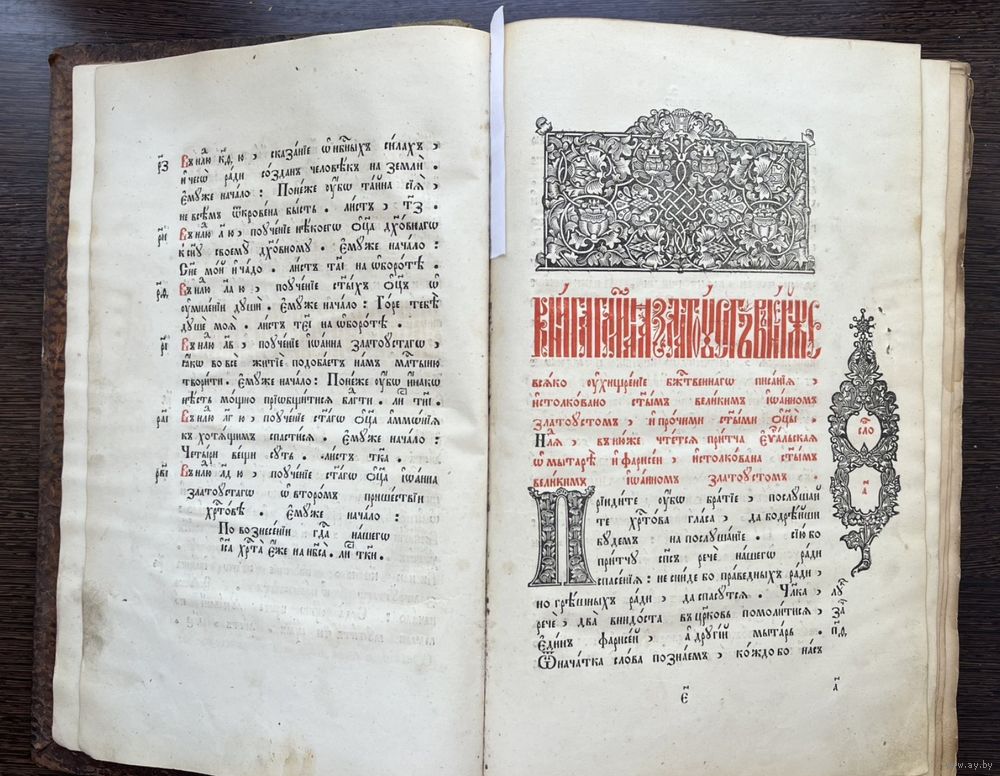 р҃з
Въ нлю к҃д, ю, сказанїе ѡ нб҃ныхъ силахъ,
и чесѡ ради созданъ человѣкъ на земли.
Емуже начало: Понеже ᲂу҆бѡ тайна сїѧ,
не всемъ ѿкровена бысть. листъ, т҃з.
р҃и
Въ нлю л҃ ю, поученїе нѣкоегѡ ѻц҃а дх҃овнагѡ
к сн҃у своему дх҃овному. Емуже начало:
Сн҃е мой и чадо. листъ та҃і на ѡборотѣ.
р҃ѳ
Въ нлю ла҃ ю, поученїе ст҃ыхъ ѻц҃ъ ѡ
ᲂумиленїи души. Емуже начало: Горе тебѣ
душе моѧ. листъ т҃еі на ѡборотѣ.
р҃і
Въ нлю л҃в, поученїе іѡанна златоустагѡ,
ꙗкѡ во все житїе подобаетъ намъ мл҃тыню
творити. Емуже начало: Понеже ᲂу҆бѡ инакѡ
нѣсть мощно прїѡбщитисѧ бл҃гти. ли҃
ра҃і
Въ нлю л҃г ю, поученїе ст҃агѡ ѻц҃а аммонїѧ
къ хотѧщимъ спастисѧ. Емуже начало:
Четыри вещи суть. листъ тк҃а.
рв҃і
Въ нлю л҃д ю, поученїе ст҃агѡ ѻц҃а іѡанна
златоустагѡ ѡ второмъ пришествїи
хрт҃овѣ. Емуже начало:
По вознесенїи гд҃а нашегѡ
іс҃а хрт҃а еже на нб҃са. ли҃
Кни́га гл҃емаѧ златоустъ в нейже
всѧко ᲂухищренїе бж҃твеннагѡ писанїѧ,
истолковано ст҃ымъ великимъ іѡанномъ
златоустомъ, и прочими ст҃ыми ѻц҃ы.
Нлѧ, в нюже чтетсѧ притча еѵ҃альскаѧ
ѡ мытарѣ и фарисеи, истолкована ст҃ымъ
великимъ іѡанномъ златоустомъ.
сло
а҃
Прїидите ᲂу҆бѡ братїе, послушай
те хрт҃ова гласа, да бодрѣйши
будемъ на послушанїе. сїю бо
притчу сп҃съ рече нашегѡ ради
спасенїѧ: не сниде бо праведныхъ ради,
но грѣшныхъ ради, да спасутсѧ. Чл҃ка,
рече, два внидоста въ црк҃овь помолитисѧ,
единъ фарисей, а другїй мытарь.
Ѿ начатка слова познаемъ, кождо бо насъ
лук
за
п҃д,
е҃
а҃
www.ay.by